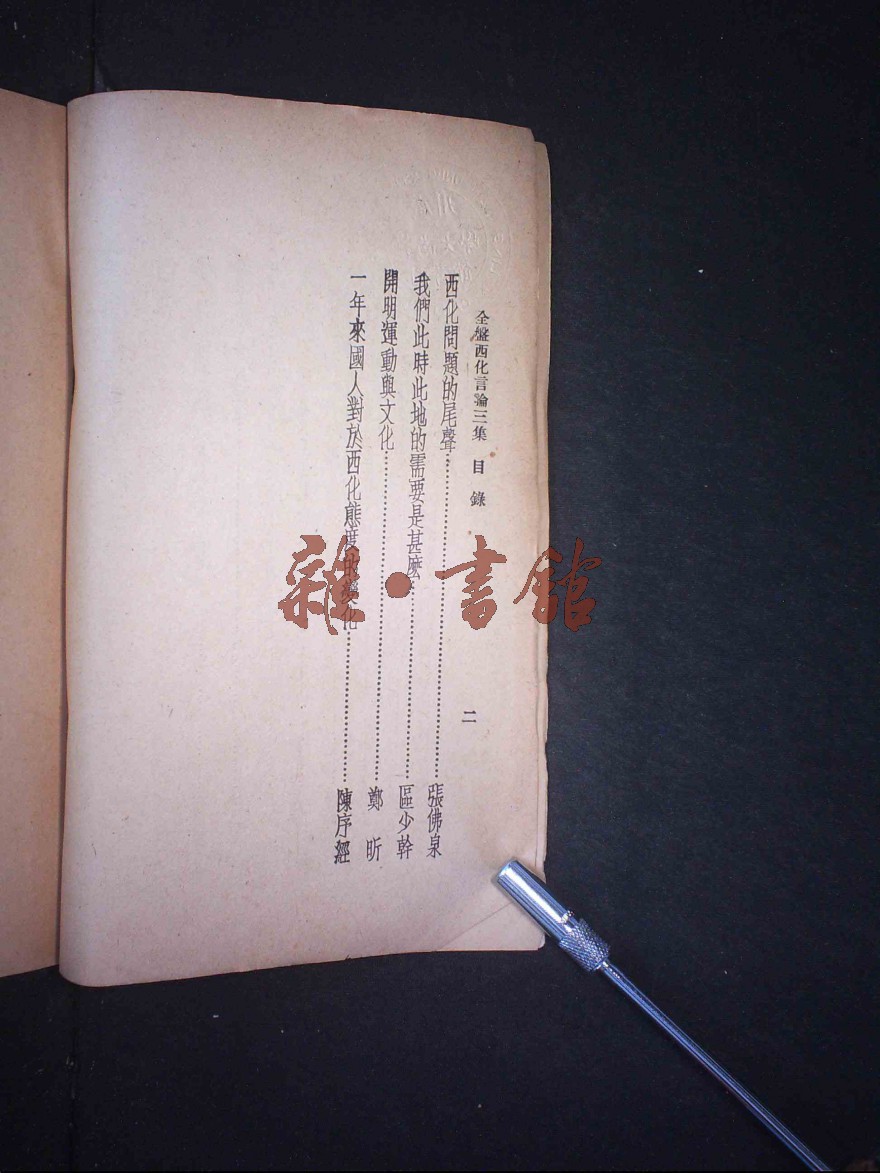 全盤西化言論三集 目錄
二
西化問題的尾聲……張佛泉
我們此時此地的需要是甚麽……區少幹
開明運動與文化……鄭昕
一年來國人對於西化態度的變化……陳序經
雜·書館